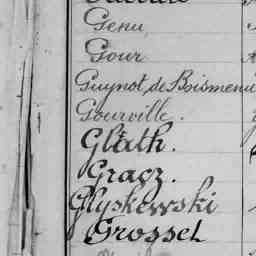 Genu
Gour
Guynot de Boismenu
Gourville.
Gläth.
Gracz.
Glyskewski
Grossel